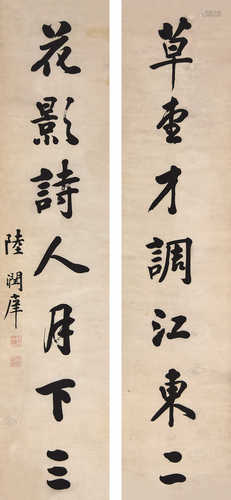 草堂才調江東二
花影詩人月下三
陸潤庠